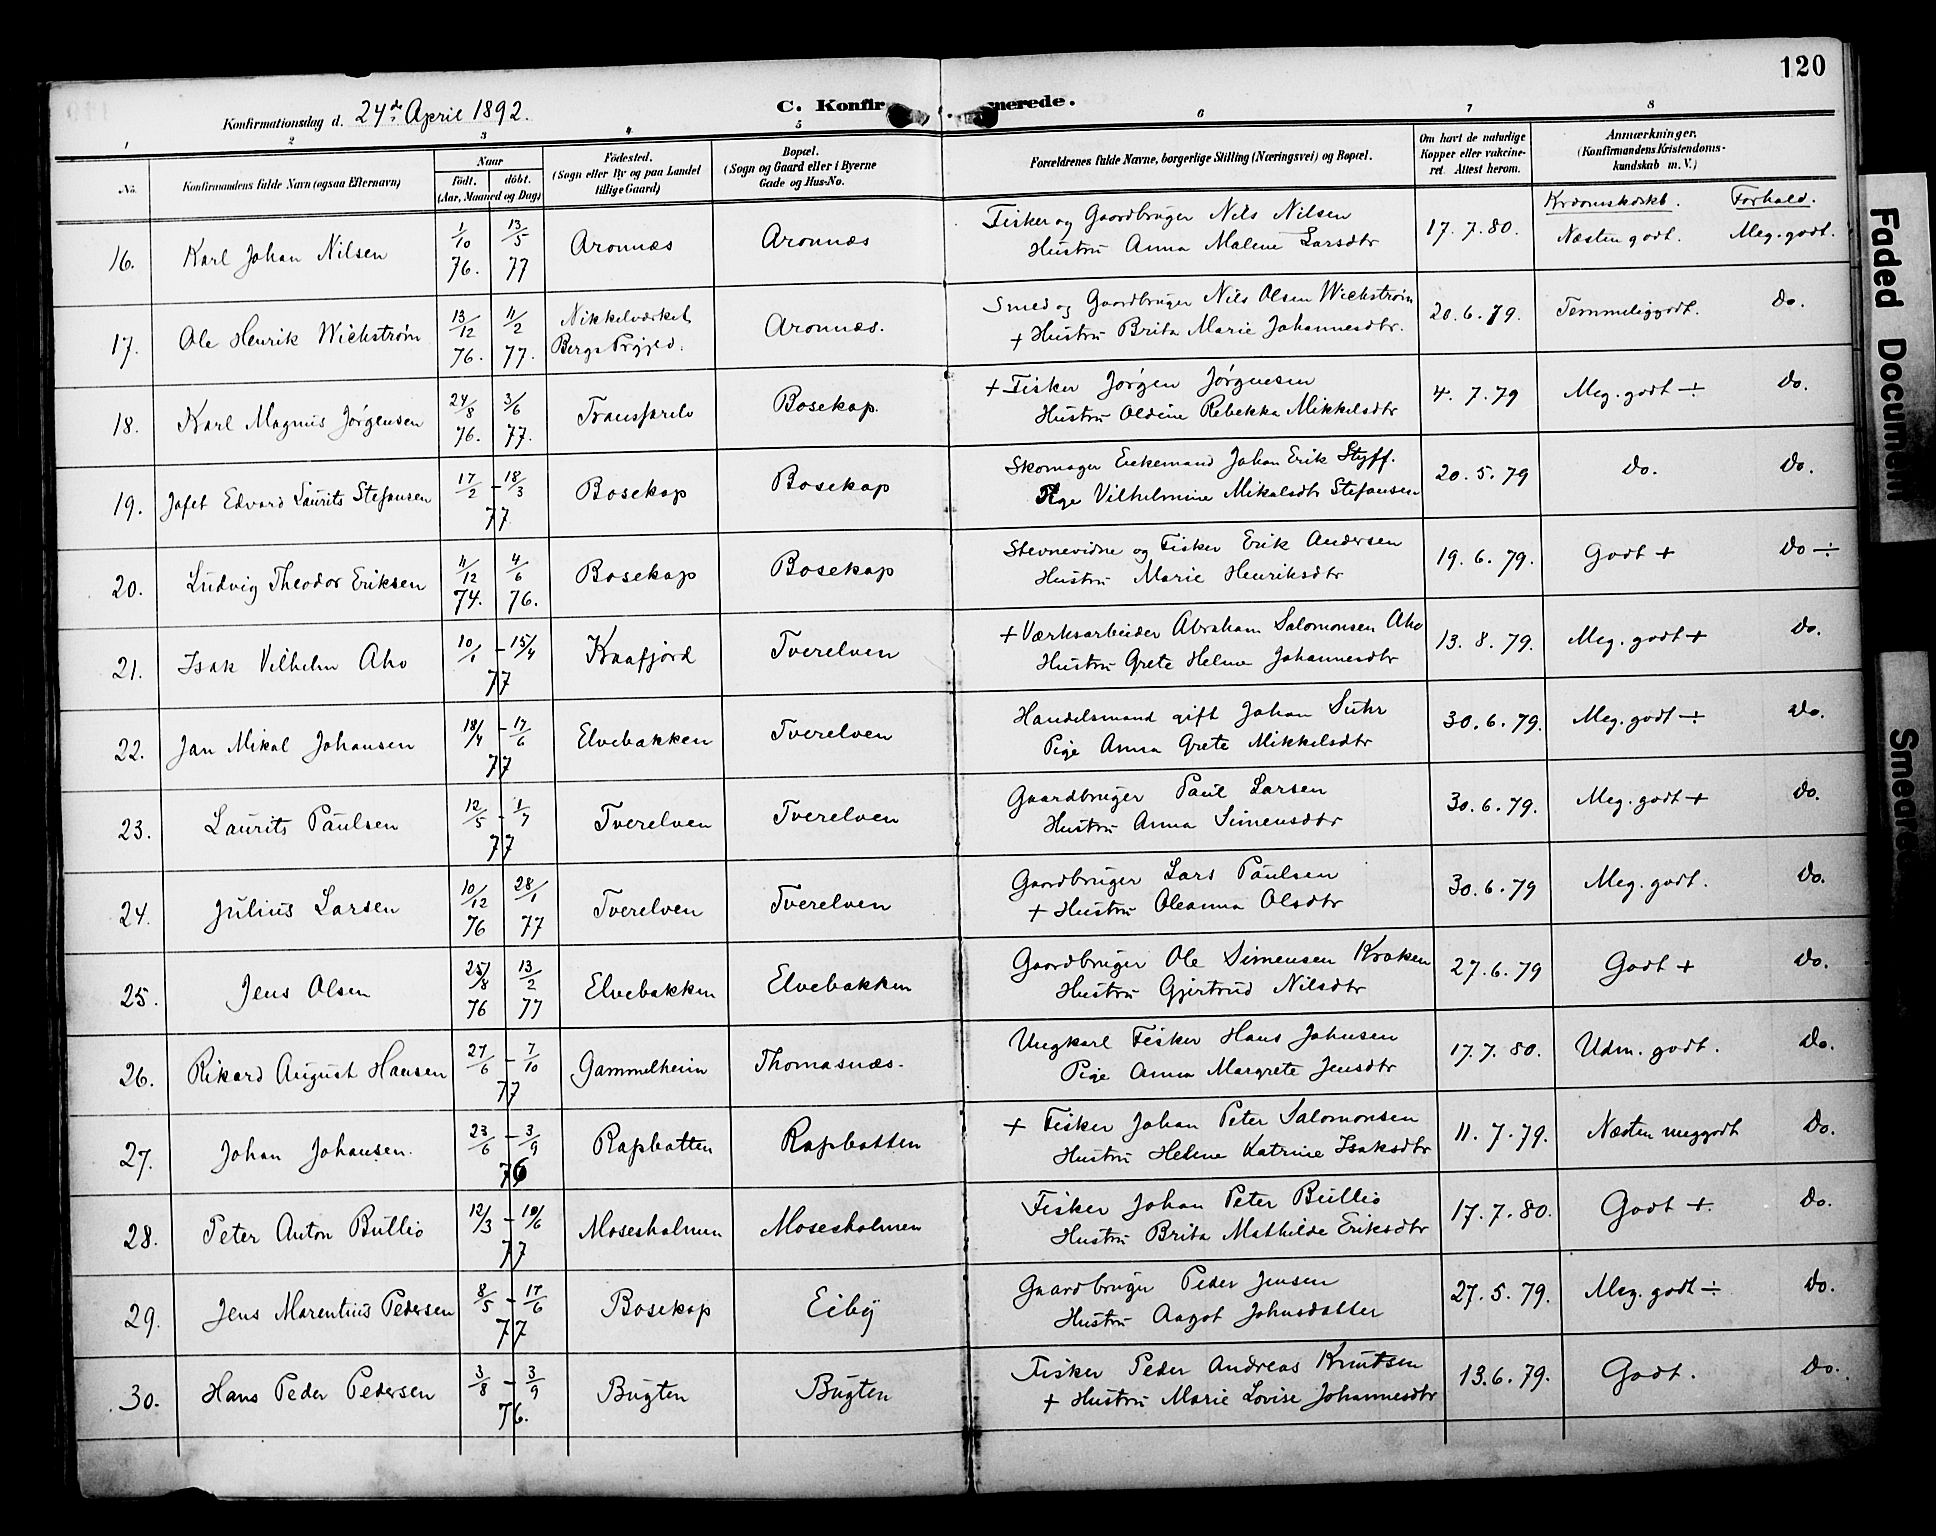 120
Konfirmationsdag d. 24de April 1892.
C. Konfirmerede.
1 2 3 4 5 6 7 8
No.
Konfirmandens fulde Navn (ogsaa Efternavn)
Naar
Födt. döbt.
(Aar, Maaned og Dag)
Födested.
(Sogn eller By og paa Landet
tillige Gaard)
Bopæl.
(Sogn og Gaard eller i Byerne
Gade og Hus-No.
Forældrenes fulde Navne, borgerlige Stilling (Næringsvei) og Bopæl.
Om havt de naturlige
Kopper eller vakcine-
ret. Attest herom.
Anmærkninger.
(Konfirmandens Kristendoms-
kundskab m. V.)
Krdomskdskb. Forhold.
16. Karl Johan Nilsen 1/10 76. 13/5 77 Aronnæs Aronnæs Fisker og Gaardbruger Nils Nilsen 17.7.80. Næsten godt. Meg. godt.
Hustru Anna Malene Larsdtr
17. Ole Henrik Wickstrøm 13/12 76. 11/2 77. Nikkelværket Aronnæs. Smed og Gaardbruger Nils Olsen Wickstrøm 20.6.79. Temmeliggodt. Do.
Bergs Prgjeld. + Hustru Brita Marie Johannesdtr.
18. Karl Magnus Jørgensen 24/8 76. 3/6 77. Transfarelv Bosekop. + Fisker Jørgen Jørgensen 4.7.79 Meg. godt ÷ Do.
Hustru Oldine Rebekka Mikkelsdtr
19. Jafet Edvard Laurits Stefansen 17/2 - 18/3 77 Bosekop Bosekop Skomager Enkemand Johan Erik Styff. 20.5.79 Do. Do.
Pige Vilhelmine Mikalsdtr Stefansen
20. Ludvig Theodor Eriksen 11/12 74. 4/6 76. Bosekop Bosekop Stevnevidne og Fisker Erik Andersen 19.6.79. Godt + Do ÷
Hustru Marie Henriksdtr
21. Isak Vilhelm Aho 10/1 - 15/4 77 Kaafjord Tverelven + Værksarbeider Abraham Salomonsen Aho 13.8.79. Meg. godt + Do.
Hustru Grete Helene Johannesdtr
22. Jan Mikal Johansen 18/4 - 17/6 77 Elvebakken Tverelven Handelsmand gift Johan Suhr 30.6.79. Meg. godt ÷ Do.
Pige Anna Grete Mikkelsdtr
23. Laurits Paulsen 12/5 - 1/7 77 Tverelven Tverelven Gaardbruger Paul Larsen 30.6.79. Meg. godt + Do.
Hustru Anna Simensdtr
24. Julius Larsen 10/12 76 28/1 77 Tverelven Tverelven Gaardbruger Lars Paulsen 30.6.79 Meg. godt. Do.
+ Hustru Oleanna Olsdtr
25. Jens Olsen 25/8 76 13/2 77 Elvebakken Elvebakken Gaardbruger Ole Simensen Kraken 27.6.79 Godt + Do.
Hustru Gjertrud Nilsdtr
26. Rikard August Hansen 27/6 - 7/10 77 Gammelheim Thomasnæs. Ungkarl Fisker Hans Johnsen 17.7.80. Udm. godt. Do.
Pige Anna Margrete Jensdtr
27. Johan Johansen. 23/6 - 3/9 76 Rapbatten Rapbatten + Fisker Johan Peter Salomonsen 11.7.79. Næsten meggodt Do.
Hustru Helene Katrine Isaksdtr
28. Peter Anton Bullio 12/3 - 10/6 77 Mosesholmen Mosesholmen Fisker Johan Peter Bullio 17.7.80. Godt +. Do.
Hustru Brita Mathilde Eriksdtr
29. Jens Marentius Pedersen 8/5 - 17/6 77 Bosekop Eiby Gaardbruger Peder Jensen 27.5.79. Meg. godt ÷ Do.
Hustru Aagot Johnsdatter
30. Hans Peder Pedersen 3/8 - 3/9 76. Bugten Bugten Fisker Peder Andreas Knutsen 13.6.79. Godt. Do.
+ Hustru Marie Lovise Johannesdtr
Faded Document
Smeared